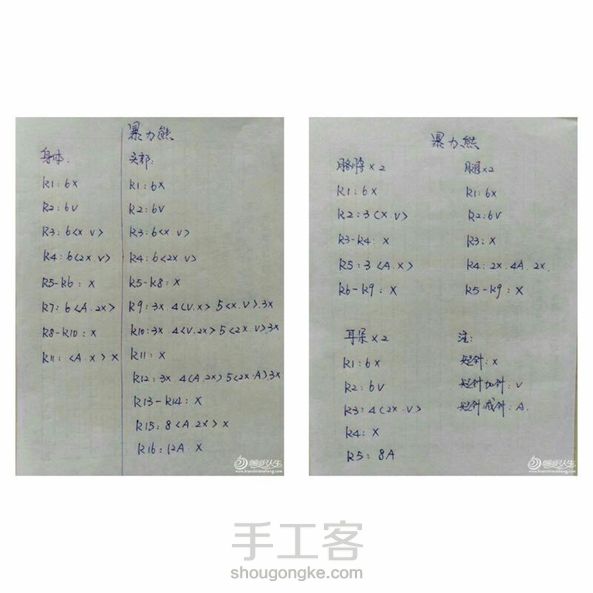 暴力熊
身体:
R1:6X
R2:6V
R3:6<X.V>
R4:6<2X.V>
R5-R6:X
R7:6<A.2X>
R8-R10:X
R11:<A.X>X
头部:
R1:6X
R2:6V
R3:6<X.V>
R4:6<2X.V>
R5-R8:X
R9:3X.4<V.X>5<X.V>.3X
R10:3X.4<V.2X>5<2X.V>3X
R11:X
R12:3X.4<A.2X>5<2X.A>3X
R13-R14:X
R15:8<A.2X>X
R16:12A.X
暴力熊
胳膊×2
R1:6X
R2:3<X.V>
R3-R4:X
R5:3<A.X>
R6-R9:X
腿×2
R1:6X
R2:6V
R3:X
R4:2X.4A.2X.
R5-R9:X
耳朵×2
R1:6X
R2:6V
R3:4<2X.V>
R4:X
R5:8A
注:
短针:X
短针加针:V
短针减针:A
手工客
shougongke.com